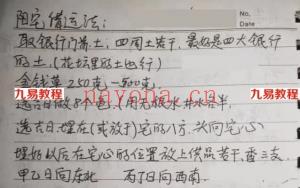 阳宅借运法：
No.
Date
取银行门前土，四周若干，最好是四大银行
的土，(花坛里的土也行)
金钱草250克—500克
选吉日做8个包（用无根水井水各半
选吉日，埋在(或放于)宅的八方，头向宅心
埋好以后在宅心的位置放上供品若干，香三支
甲乙日向东北 丙丁日向西南
九易教程网
www.nayona.cn
九易教程网
www.nayona.cn